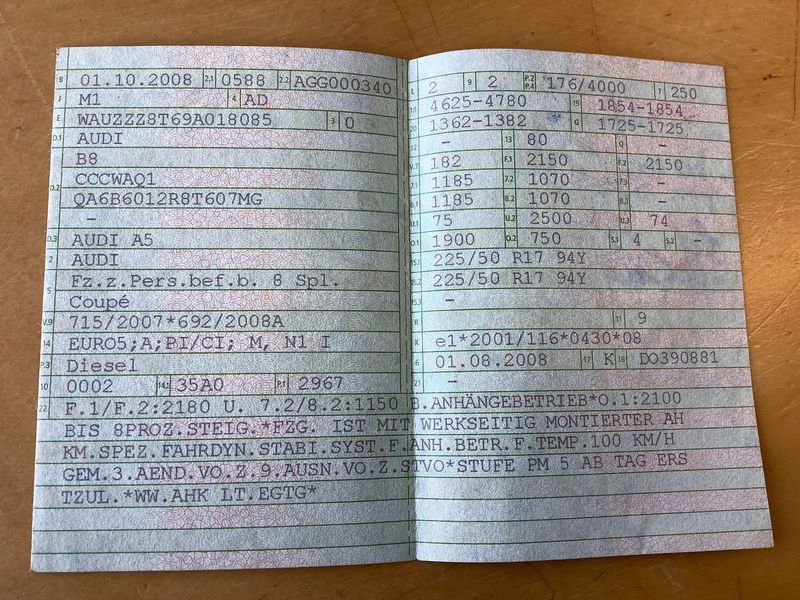 B 01.10.2008 2.1 0588 2.2 AGG000340
J M1 4 AD
E WAUZZZ8T69A018085 3 0
D.1 AUDI
B8
D.2 CCCWAQ1
QA6B6012R8T607MG
–
D.3 AUDI A5
2 AUDI
5 Fz.z.Pers.bef.b. 8 Spl.
Coupé
V.9 715/2007*692/2008A
14 EURO5;A;PI/CI; M, N1 I
P.3 Diesel
10 0002 14.1 35A0 P.1 2967
L 2 9 2 P.2 P.4 176/4000 T 250
18 4625-4780 19 1854-1854
20 1362-1382 G 1725-1725
12 – 13 80 Q –
V.7 182 F.1 2150 F.2 2150
7.1 1185 7.2 1070 7.3 –
8.1 1185 8.2 1070 8.3 –
U.1 75 U.2 2500 U.3 74
O.1 1900 O.2 750 S.1 4 S.2 –
15.1 225/50 R17 94Y
15.2 225/50 R17 94Y
15.3 –
R 11 9
K e1*2001/116*0430*08
6 01.08.2008 17 K 16 DO390881
21 –
22 F.1/F.2:2180 U. 7.2/8.2:1150 B.ANHÄNGEBETRIEB*O.1:2100
BIS 8PROZ.STEIG.*FZG. IST MIT WERKSEITIG MONTIERTER AH
KM.SPEZ.FAHRDYN.STABI.SYST.F.ANH.BETR.F.TEMP.100 KM/H
GEM.3.AEND.VO.Z.9.AUSN.VO.Z.STVO*STUFE PM 5 AB TAG ERS
TZUL.*WW.AHK LT.EGTG*